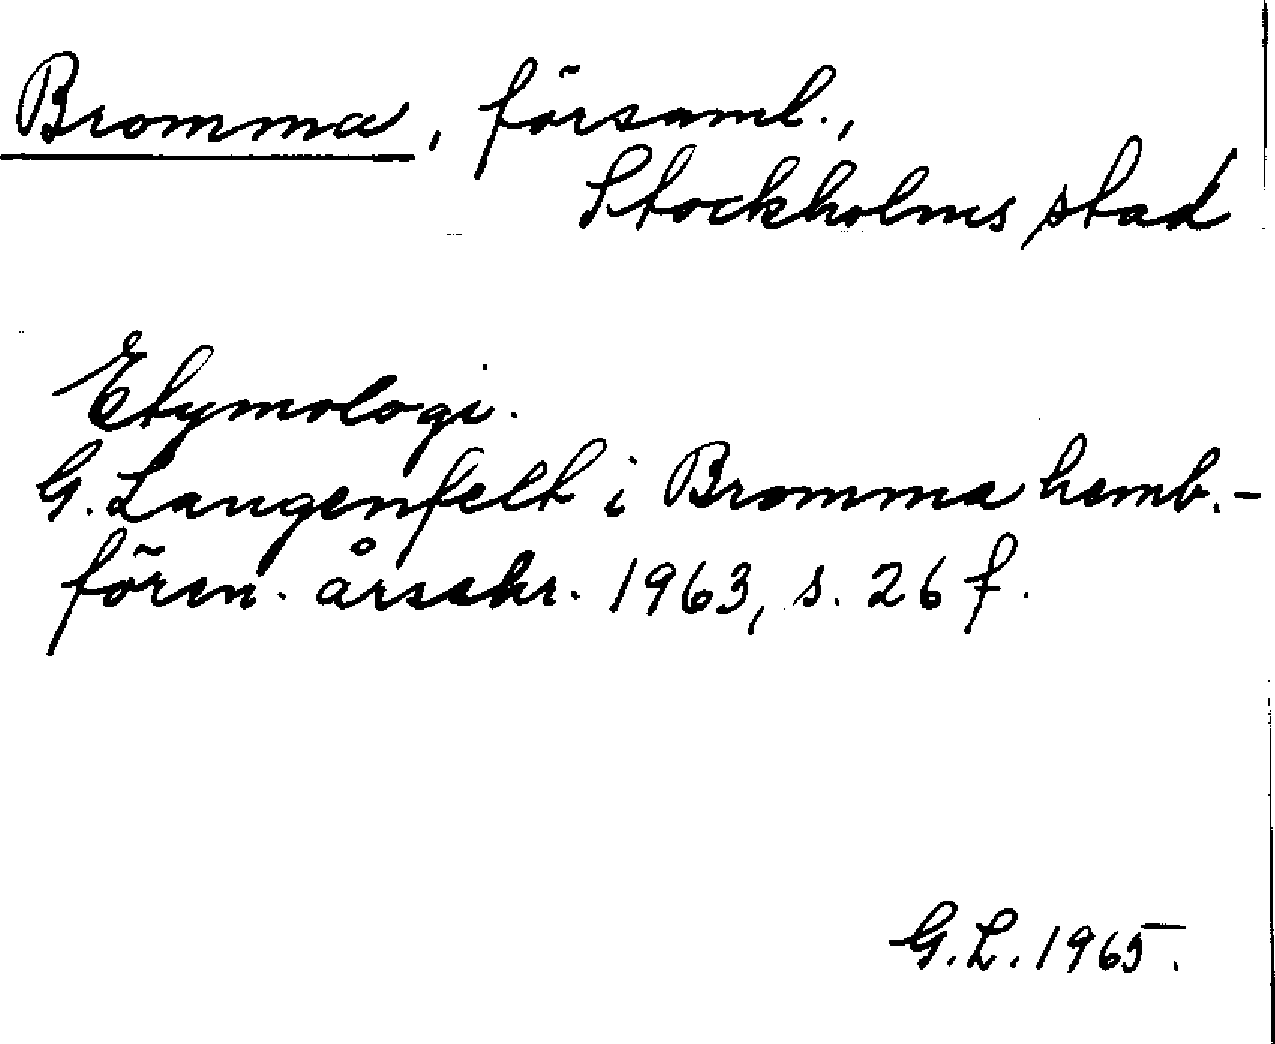 Bromma, församl.,
Stockholms stad
Etymologi.
G. Langenfelt i Bromma hemb.-
fören. årsskr. 1963, s. 26 f.
G.L. 1965.